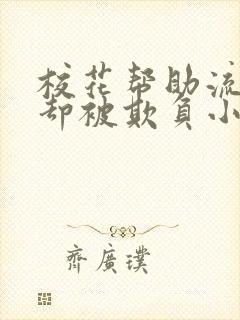 校花帮助流
却被欺負小
齊廣璞